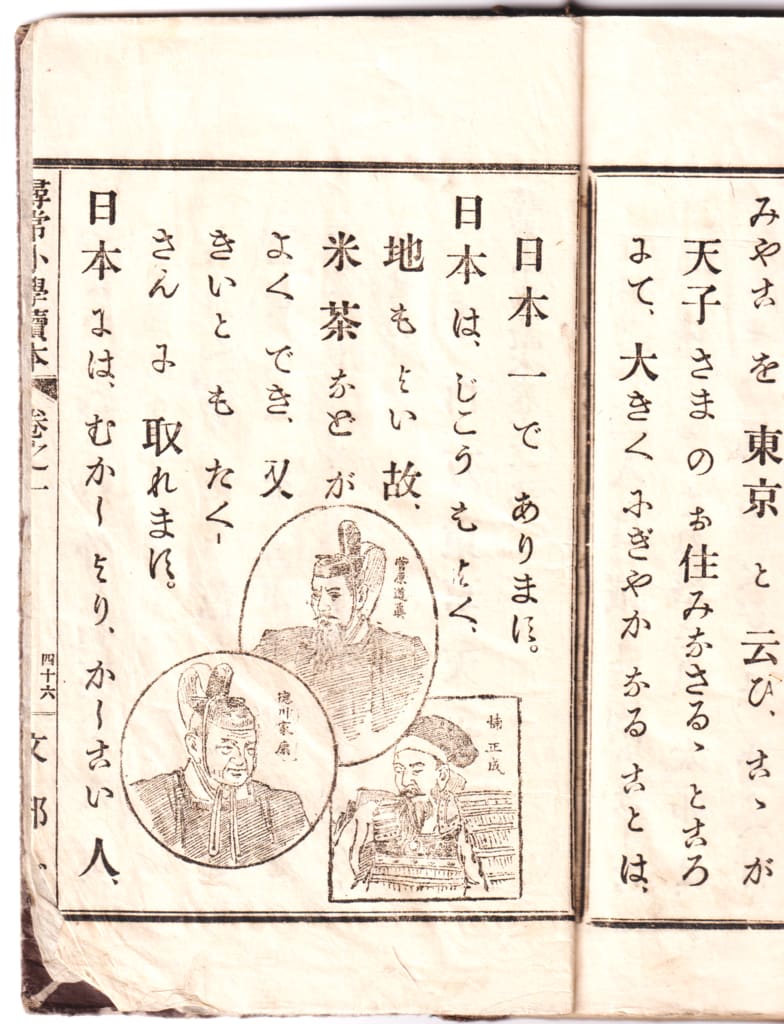 みやこ を 東京 と 云ひ、こゝ が
天子 さま の お住みなさるゝ ところ
にて、大きく にぎやか なる ことは、
日本 一で あります。
日本は、じこう も よく、
地 も よい 故、
米 茶 など が
よく でき、又
きいと も たく-
さん に 取れます。
日本 には、むかし より、かしこい 人、
菅原道真
楠正成
徳川家康
尋常小學讀本 卷之一 四十六 文部